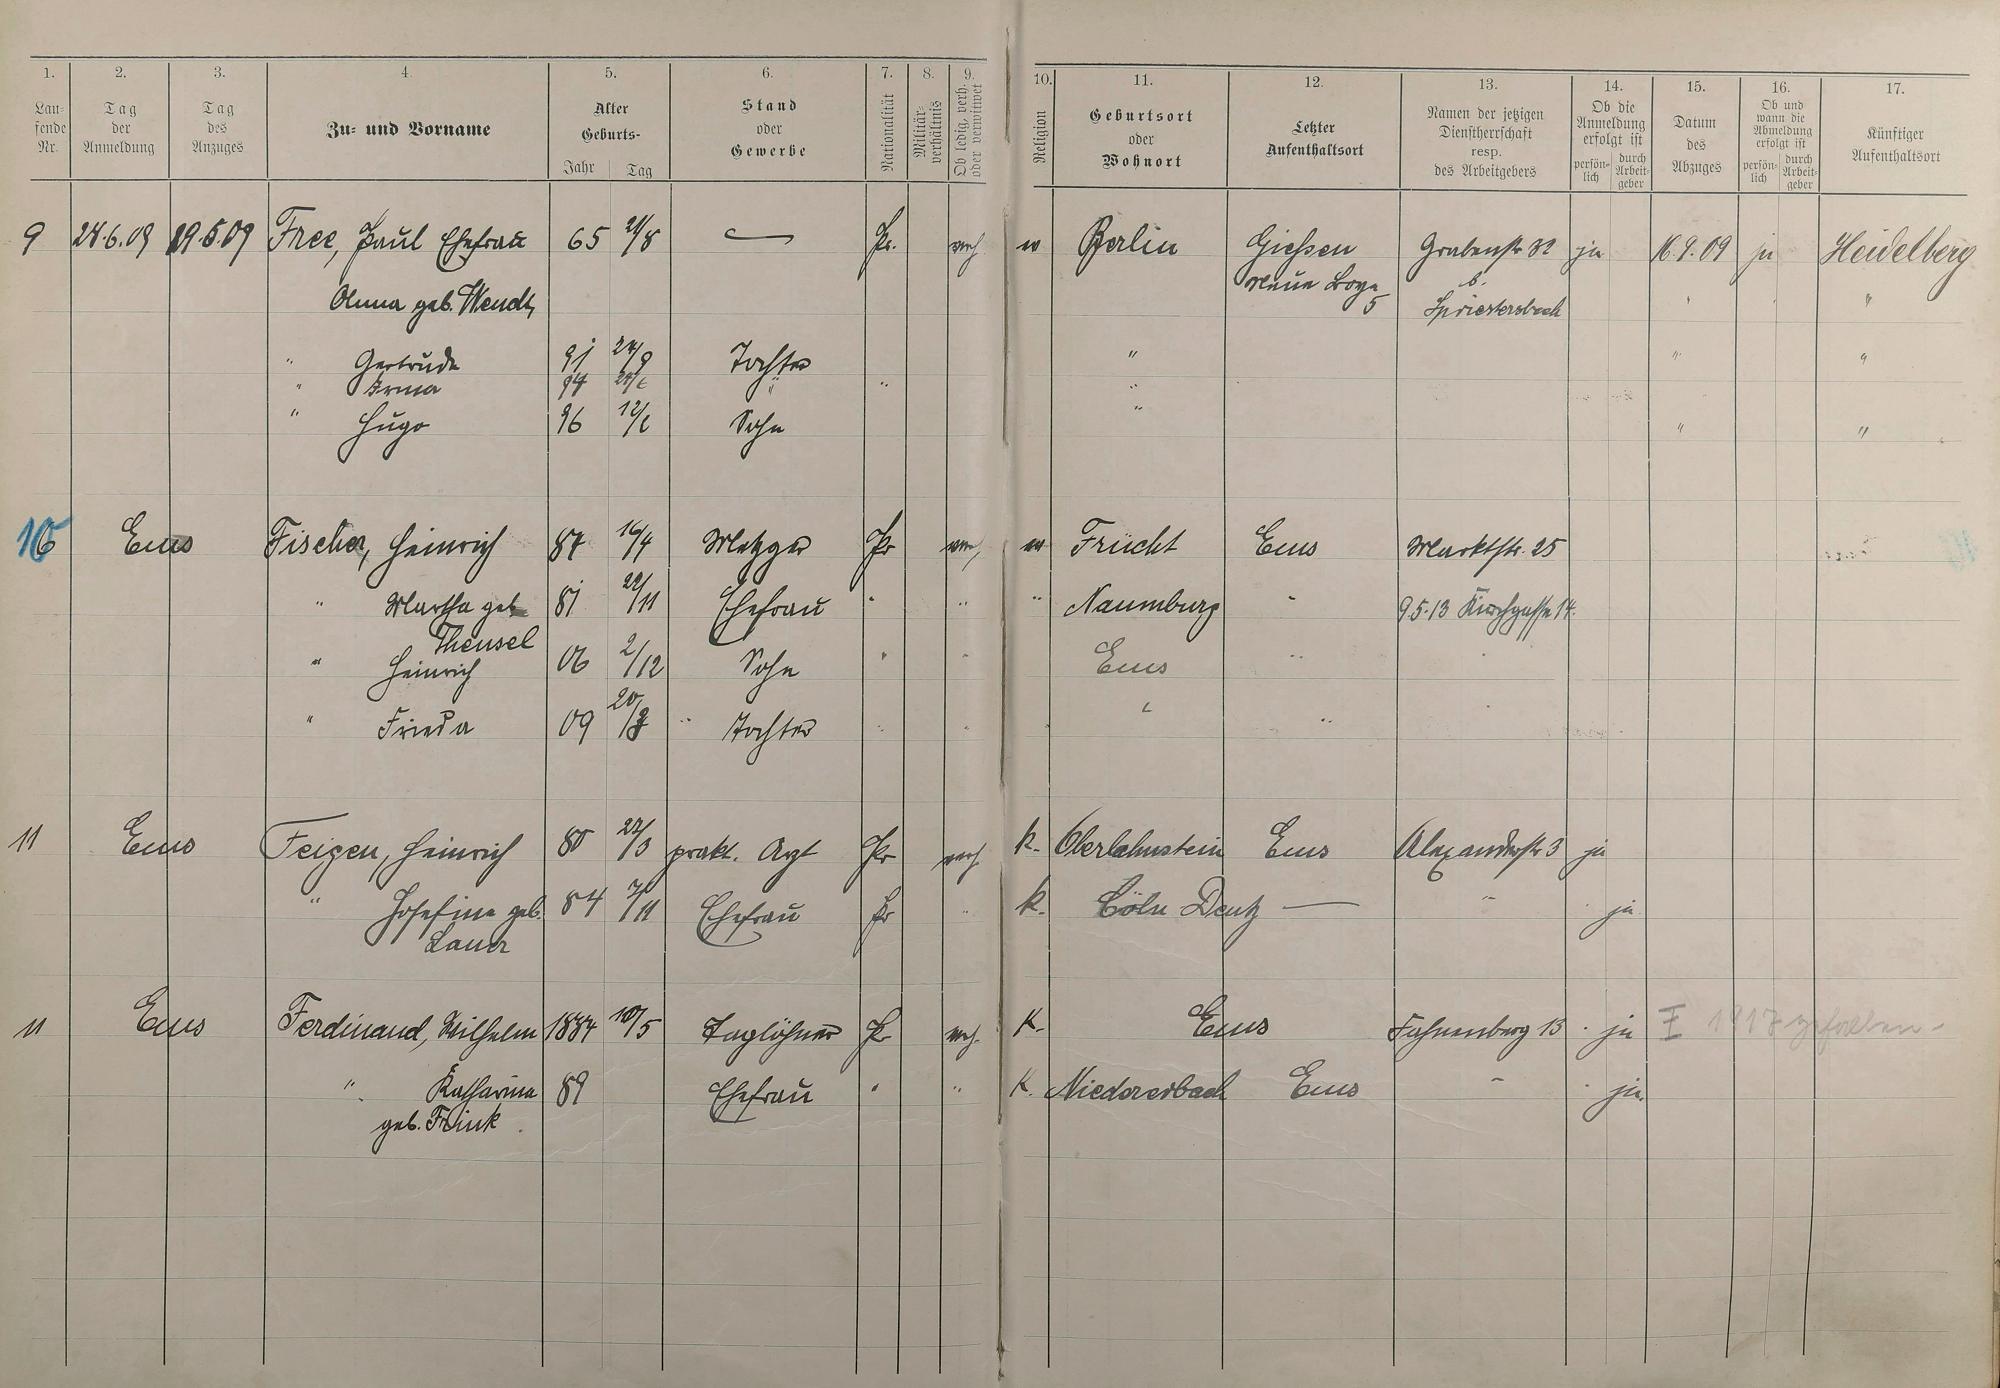 1. 2. 3. 4. 5. 6. 7. 8. 9. 10. 11. 12. 13. 14. 15. 16. 17.
Lau-
fende
Nr.
Tag
der
Anmeldung
Tag
des
Anzuges
Zu- und Vorname
Alter
Geburts-
Jahr Tag
Stand
oder
Gewerbe
Nationalität
Militär-
verhältnis
Ob ledig, verh.
oder verwitwet
Religion
Geburtsort
oder
Wohnort
Letzter
Aufenthaltsort
Namen der jetzigen
Dienstherrschaft
resp.
des Arbeitgebers
Ob die
Anmeldung
erfolgt ist
persön-
lich
durch
Arbeit-
geber
Datum
des
Abzuges
Ob und
wann die
Abmeldung
erfolgt ist
persön-
lich
durch
Arbeit-
geber
Künftiger
Aufenthaltsort
9 24.6.09 19.5.09 Free, Paul Ehefrau 65 Pr. verh. Berlin Giessen Grabenstr 32 ja 16.9.09 ja Heidelberg
Anna geb. Wendt, Neue 5 b. Spriestersbach " "
" Gertrude 91 24/9 Tochter " " "
" Irma 94 " " "
" Hugo 96 Sohn " " "
10 Ems Fischer, Heinrich 87 16/4 Metzger Pr verh. Frücht Ems Marktstr. 25
" Martha geb. 81 22/11 Ehefrau " " " Naumburg " 9.5.13 Kirchgasse 14.
Theusel
" Heinrich 06 2/12 Sohn " " Ems "
" Frieda 09 Tochter " " " "
11 Ems Feigen, Heinrich 80 22/3 prakt. Arzt Pr verh. k. Oberlahnstein Ems Alexanderstr 3 ja
" Josefine geb. 84 7/11 Ehefrau Pr " k. Cöln Deutz — " ja
Lauer
11 Ems Ferdinand, Wilhelm 1884 10/5 Taglöhner Pr verh. K. Ems Fahnenberg 13 ja 1917 gefallen
" Katharina 89 Ehefrau " " K. Niedererbach Ems " ja.
geb. Frink